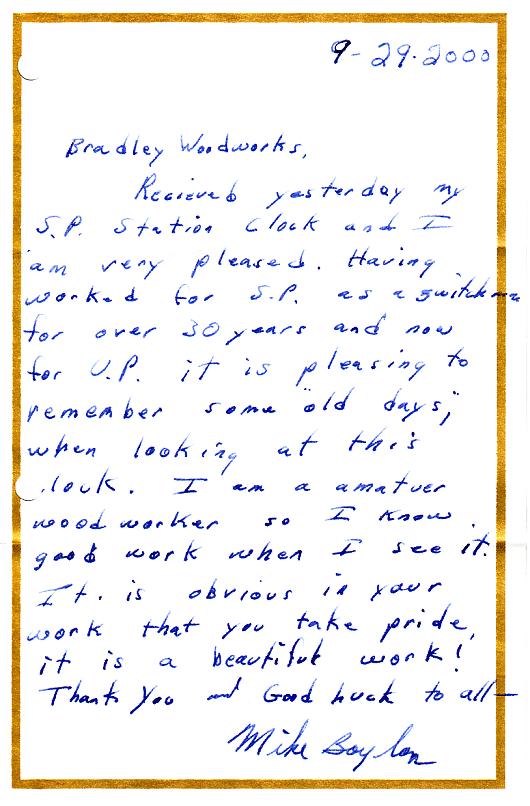 9-29-2000
Bradley Woodworks,
Recieved yesterday my
S.P. Station Clock and I
am very pleased. Having
worked for S.P. as a switchman
for over 30 years and now
for U.P. it is pleasing to
remember some "old days",
when looking at this
clock. I am a amatuer
wood worker so I know
good work when I see it.
It. is obvious in your
work that you take pride,
it is a beautiful work!
Thank You and Good Luck to all-
Mike Boylan